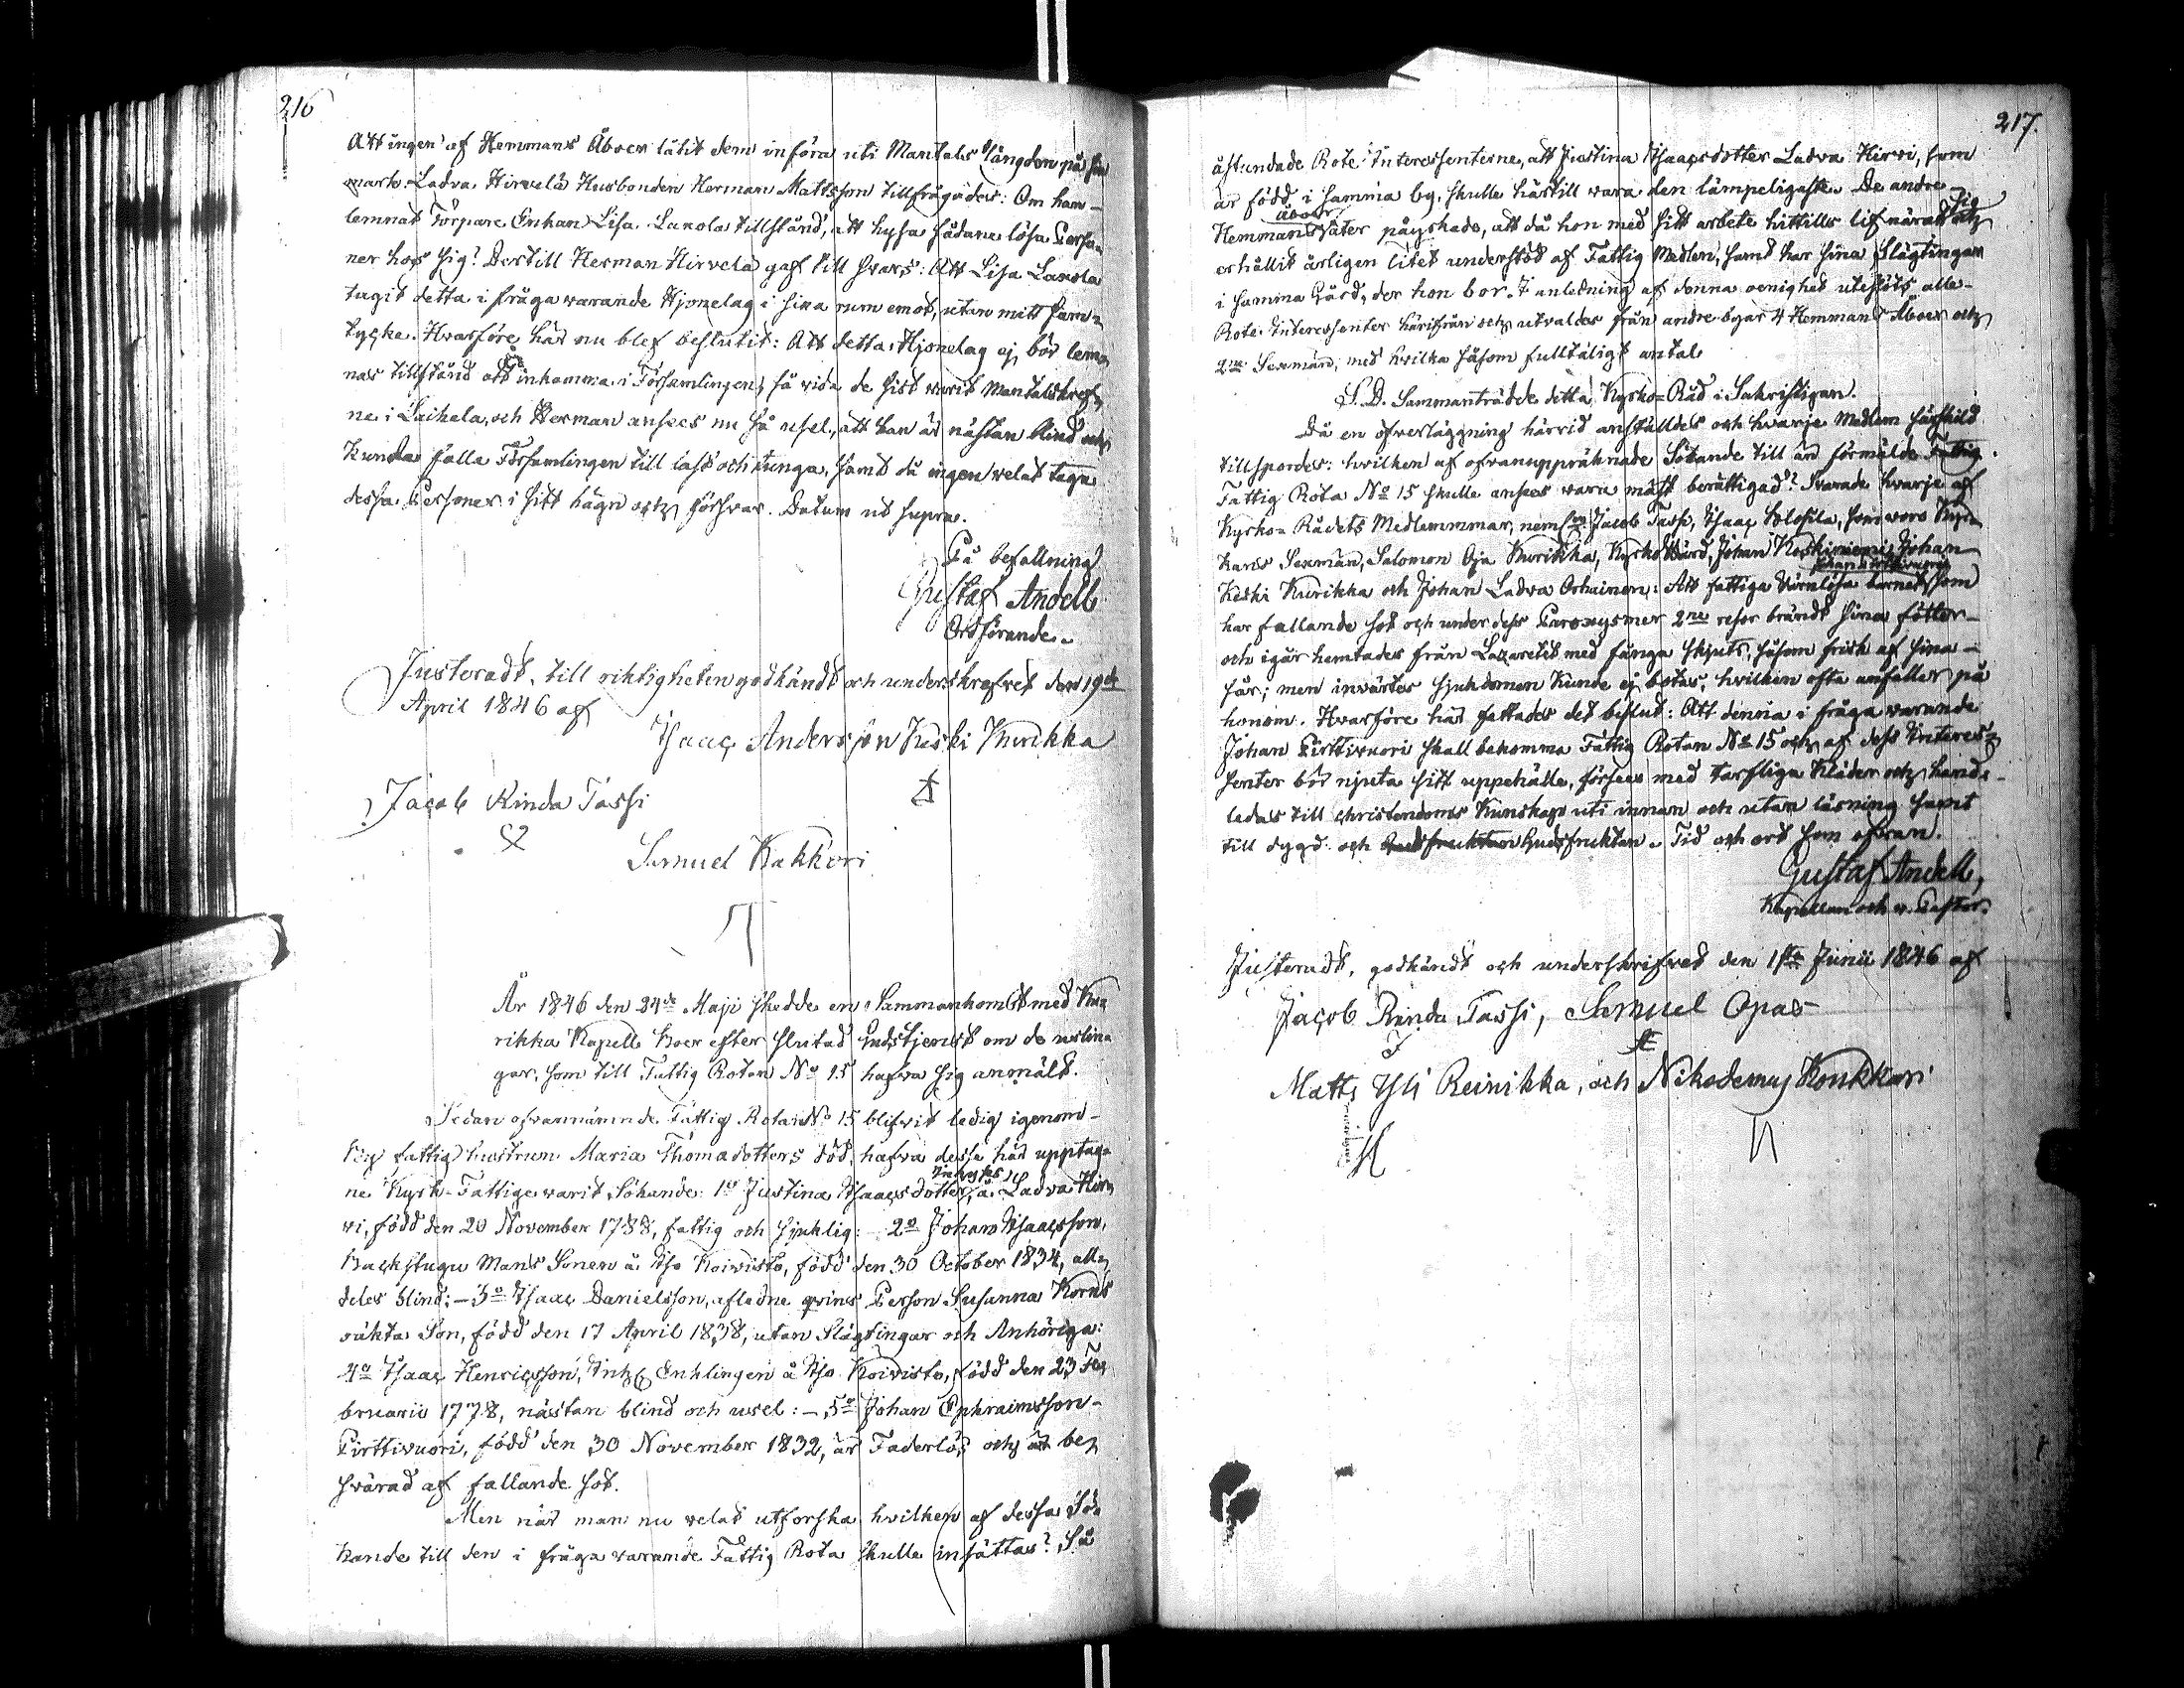 216
Att ingen af Hemmans Åboer låtit dem införa uti Mantals Längden på sin
mark. Ladva Hirvelä Husbonden Herman Mattsson tillfrågades: Om han
lemnat Torpare Enkan Lisa Lanola tillstånd, att hysa sådana lösa Perso-
ner hos sig? Dertill Herman Hirvelä gaf till svars: Att Lisa Lanola
tagit detta i fråga varande Hjonelag i sina rum emot, utan mitt sam-
tycke. Hvarföre här nu blef beslutit: Att detta Hjonelag ej bör lem-
nas tillstånd att inkomma i Församlingen, så vida de sist varit Mantalskrefs-
ne i Laihela, och Herman ansees nu så usel, att han är nästan blind och
kunde falla Församlingen till last och tunga, samt då ingen velat taga
dessa Personer i sitt hägn och försvar. Datum ut supra.
På befallning
Gustaf Andell
Ordförande.
Justeradt, till riktigheten godkändt och underskrefvet den 19de
April 1846 af
Isaac Andersson Keski Kurikka
Jacob Rinda Tassi
Samuel Kakkori
År 1846 den 24de Maji skedde en Sammankomst med Ku-
rikka Kapell Boer efter slutad Gudstjenst om de uslin-
gar, som till Fattig Rotan No 15 hafva sig anmält.
Sedan ofvannämnde Fattig Rotan No 15 blifvit ledig igenom
fattig hustrun Maria Thomasdotters död, hafva dessa här upptag-
ne Kyrk-Fattige varit Sökande: 1o Justina Isaacsdotter, Inhyses å Ladva Hir-
vi, född den 20 November 1788, fattig och sjuklig: 2o Johan Isaacsson,
Backstugu Mans Sonen å Iso Koivisto, född den 30 October 1834, all-
deles blind: – 3o Isaac Danielsson, aflidne qvins Person Susanna Korns
oäkta Son, född den 17 April 1838, utan Slägtingar och Anhöriga:
4o Isaac Henricsson, Enklingen å Iso Koivisto, född den 23 Fe-
bruarii 1778, nästan blind och usel: – 5o Johan Ephraimsson
Pirttivuori, född den 30 November 1832, är Faderlös och är be-
svärad af fallande sot.
Men när man nu velat utforska hvilken af dessa Sö-
kande till den i fråga varande Fattig Rota skulle insättas? Så
217.
åstundade Rote Interessenterne, att Justina Isaacsdotter Ladva Hirvi, som
är född i samma by, skulle härtill vara den lämpeligaste. De andre
Hemmans Åboer åter påyrkade, att då hon med sitt arbete hittills lifnärat sig och
erhållit årligen litet understöd af Fattig Medlen, samt har sina Slägtingar
i samma Gård, der hon bor. I anledning af denna oenighet uteslöts alla
Rote Interessenter härifrån och utvaldes från andre byar 4 Hemmans Åboer och
2ne Sexmän, med hvilka såsom fulltaligt antal
S. D. Sammanträdde detta Kyrko-Råd i Sakristigan.
Då en öfverläggning härvid anställdes och hvarje Medlem särskild
tillspordes: hvilken af ofvanuppräknade Sökande till än förmälde
Fattig Rota No 15 skulle ansees vara mäst berättigad? Svarade hvarje af
Kyrko Rådets Medlemmar, neml. Jacob Tassi, Isaac , som woro Kyr-
kans Sexmän, Salomon Oja Kurikka, Kyrko Värd, Johan Koskiniemi, Johan
Keski Kurikka och Johan Ladva Orhainen: Att fattiga Värnlösa barnet Johan Pirttivuori som
har fallande sot och under dess Paroxysmer 2ne resor brändt sina fötter
och igår hemtades från Lazarettet med fånga skjuts, såsom frisk af sina
sår; men invärtes sjukdomen kunde ej botas, hvilken ofta anfaller på
honom. Hvarföre här fattades det beslut: Att denna i fråga varande
Johan Pirttivuori skall bekomma Fattig Rotan No 15 och af dess Interes-
senter bör njuta sitt uppehälle, försees med tarfliga kläder och hand-
ledas till christendoms kunskap uti innan och utan läsning samt
till dygd och Gudsfruktan Gudsfruktan. Tid och ort som ofvan.
Gustaf Andell,
Kapellan och v. Pastor.
Justeradt, godkändt och underskrifvet den 1sta Junii 1846 af
Jacob Rinda Tassi, Samuel Opas
Matts Yli Reinikka, och Nikodemus Konkkari